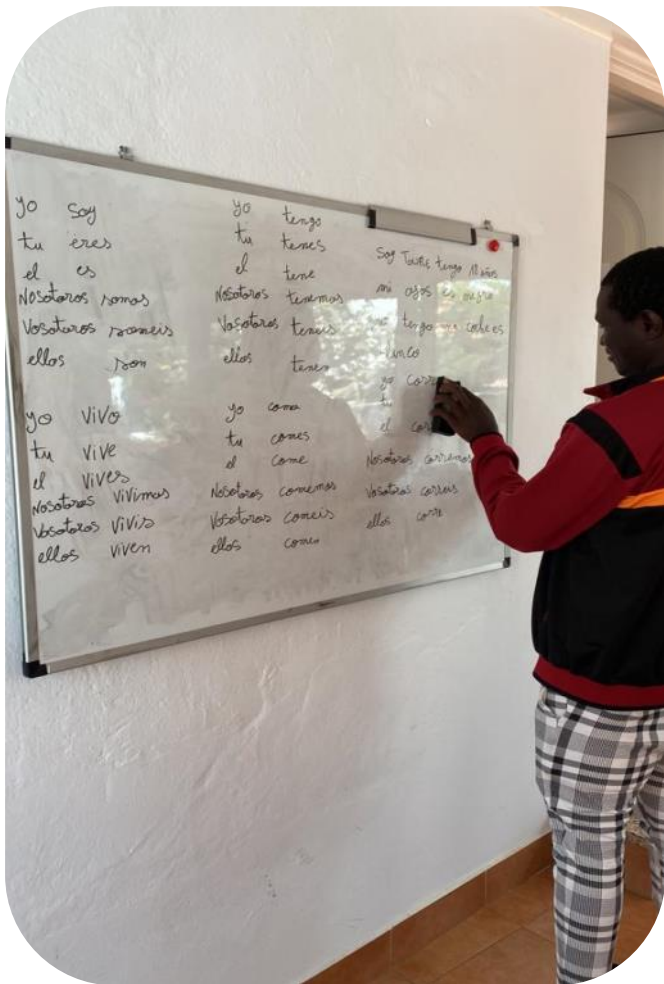 yo soy
tu eres
el es
Nosotaros somos
Vosotaros someis
ellos son
yo vivo
tu vive
el vives
Nosotaros vivimos
Vosotaros vivis
ellos viven
yo tengo
tu tenes
el tene
Nosotaros tenemos
Vosotaros teneis
ellos tenen
yo come
tu comes
el come
Nosotaros comemos
Vosotaros comeis
ellos comen
Soy tengo 11 años
mi ojos es negro
tengo coche es
yo
tu
el
Nosotaros corremos
Vosotaros correis
ellos corre